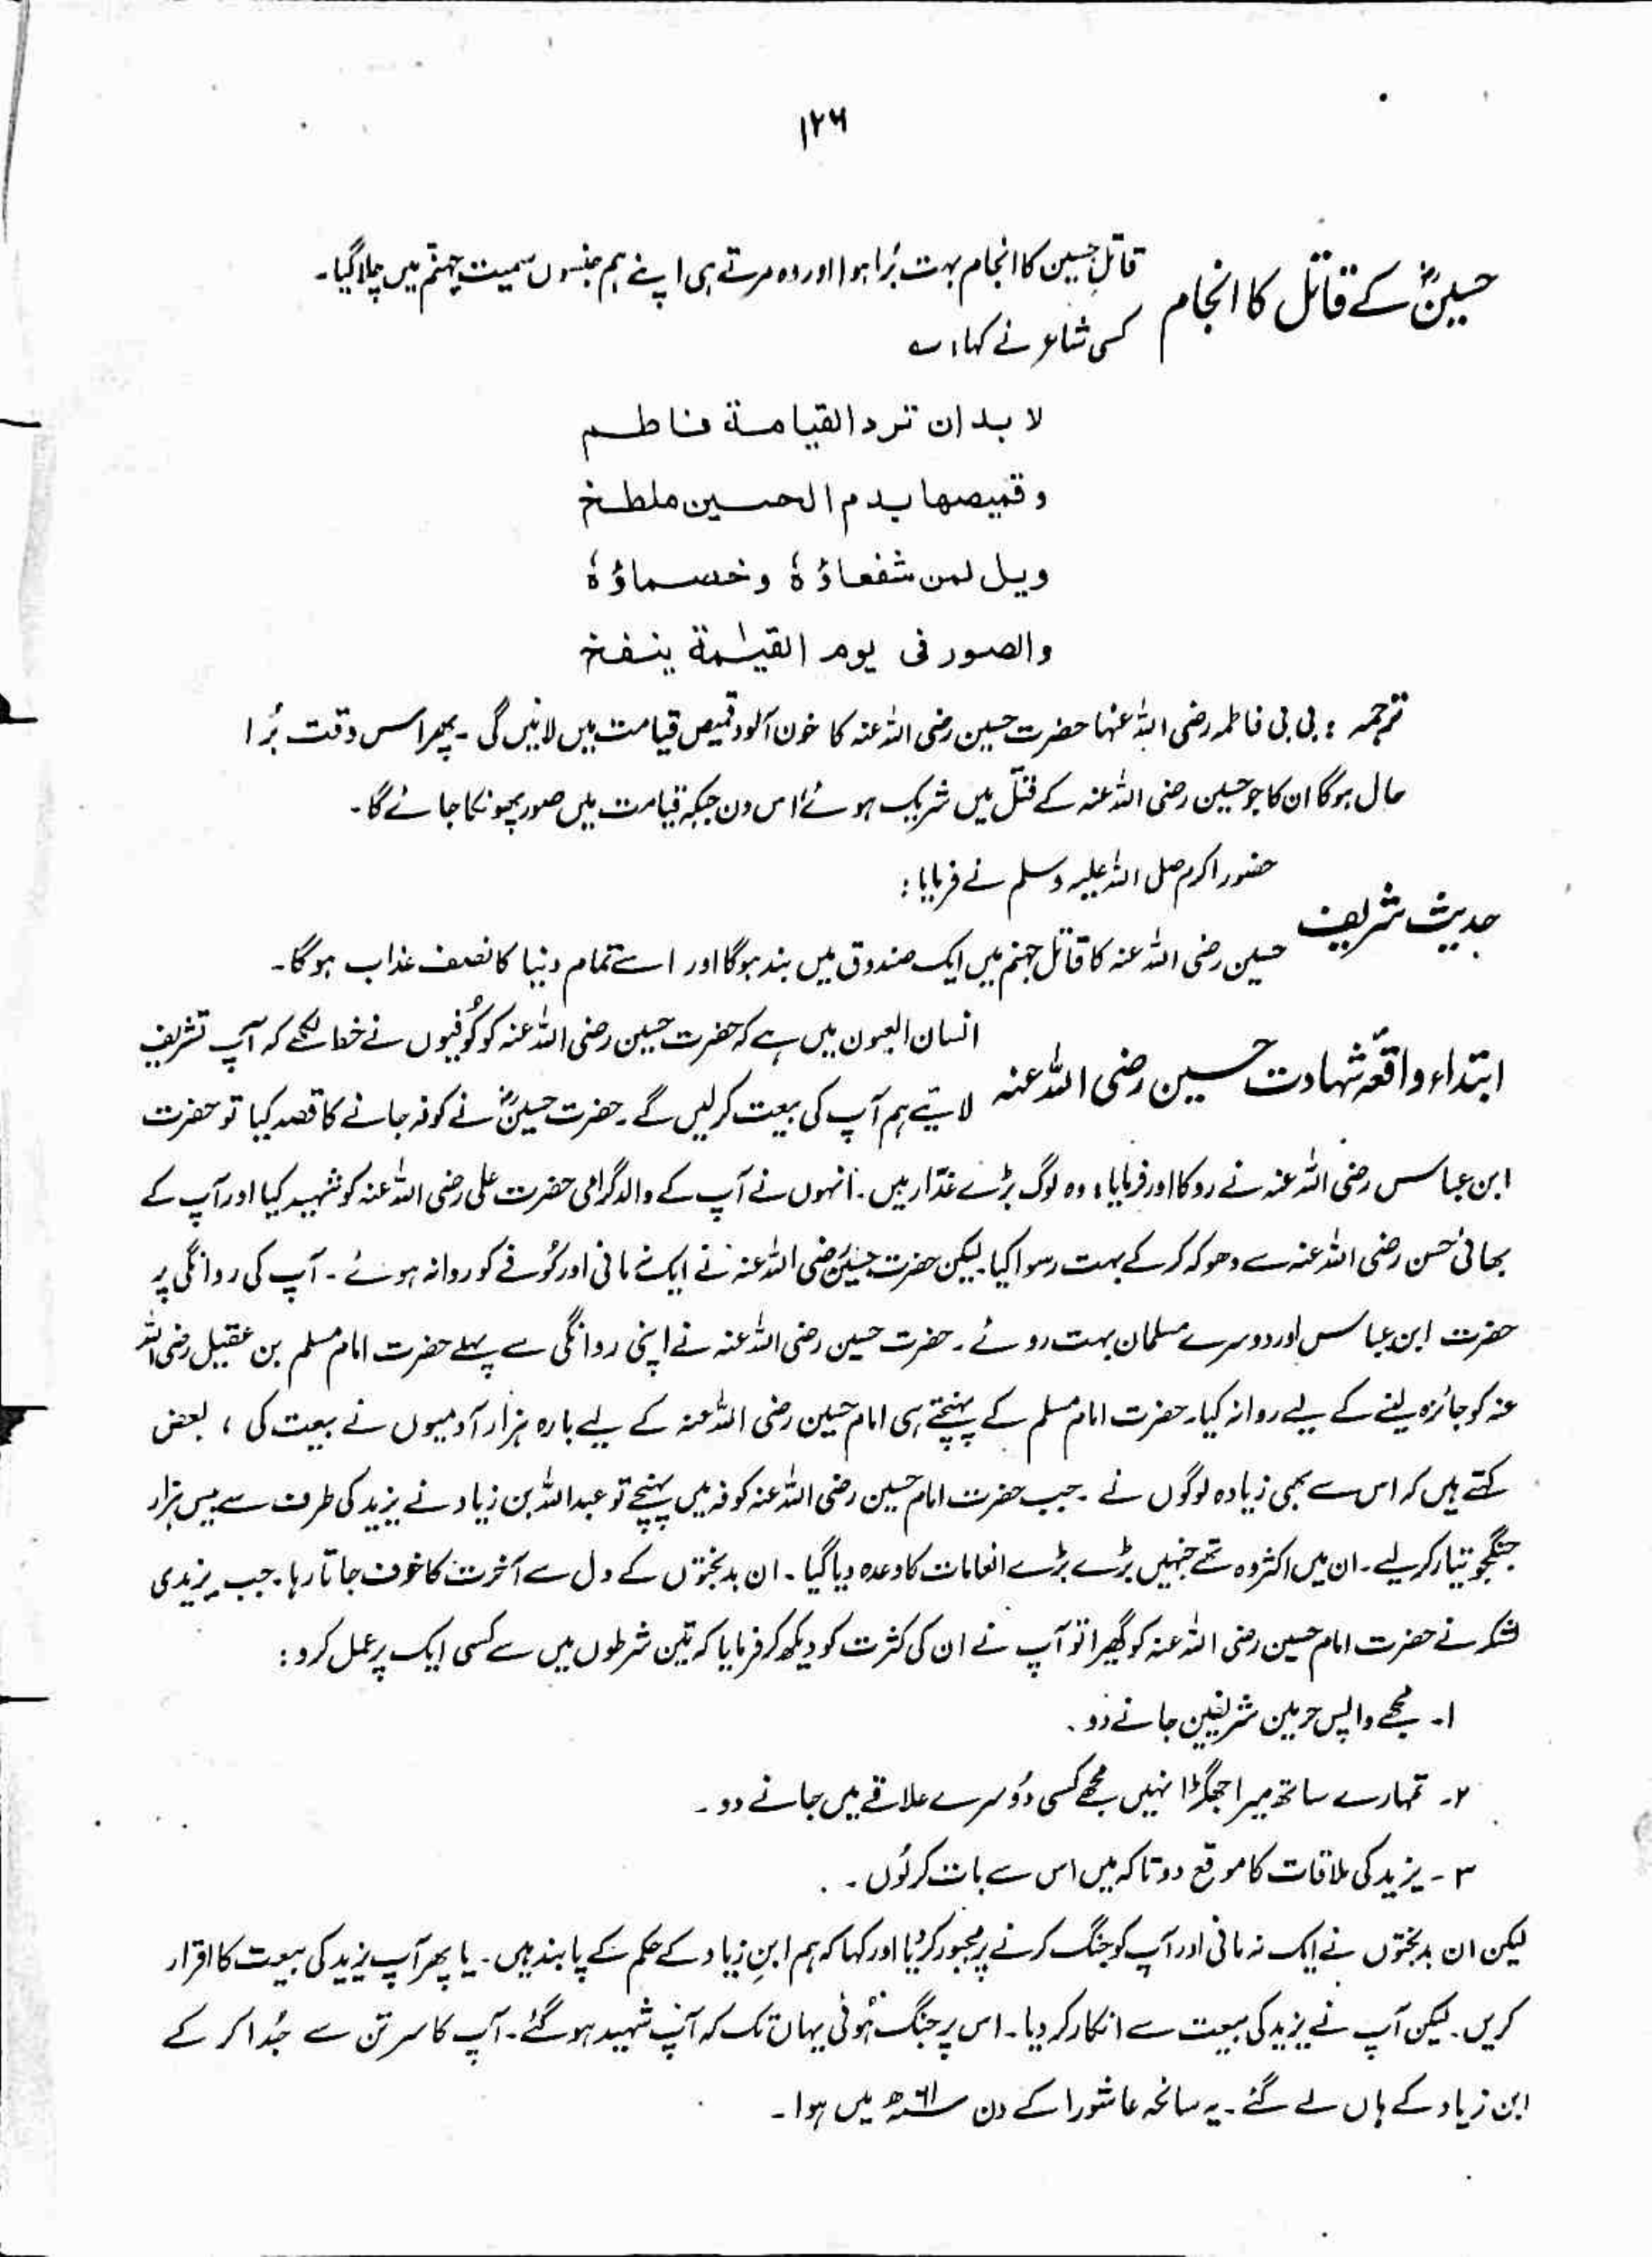 ۱۲۶
حسینؓ کے قاتل کا انجام
قاتلِ حسین کا انجام بہت بُرا ہوا اور وہ مرتے ہی اپنے ہم جنسوں سمیت جہنّم میں چلا گیا۔
کسی شاعر نے کہا، ؎
لا بد ان ترد القیامة فاطم
وقمیصها بدم الحسین ملطخ
ویل لمن شفعاؤہٗ وخصماؤہٗ
والصور فی یوم القیٰمة ینفخ
ترجمہ : بی بی فاطمہ رضی اللہ عنہا حضرت حسین رضی اللہ عنہ کا خون آلود قمیص قیامت میں لائیں گی ۔ پھر اس وقت بُرا
حال ہوگا ان کا جو حسین رضی اللہ عنہ کے قتل میں شریک ہوئے اس دن جبکہ قیامت میں صور پھونکا جائے گا۔
حدیث شریف
حضور اکرم صلی اللہ علیہ وسلم نے فرمایا :
حسین رضی اللہ عنہ کا قاتل جہنم میں ایک صندوق میں بند ہوگا اور اسے تمام دنیا کا نصف عذاب ہوگا۔
ابتداء واقعۂ شہادت حسین رضی اللہ عنہ
انسان العیون میں ہے کہ حضرت حسین رضی اللہ عنہ کو کُوفیوں نے خط لکھے کہ آپ تشریف
لائیے ہم آپ کی بیعت کرلیں گے ۔ حضرت حسینؓ نے کوفہ جانے کا قصد کیا تو حضرت
ابن عباس رضی اللہ عنہ نے روکا اور فرمایا، وہ لوگ بڑے غدّار ہیں ۔ انہوں نے آپ کے والد گرامی حضرت علی رضی اللہ عنہ کو شہید کیا اور آپ کے
بھائی حسن رضی اللہ عنہ سے دھوکہ کر کے بہت رسوا کیا۔ لیکن حضرت حسین رضی اللہ عنہ نے ایک نہ مانی اور کُوفے کو روانہ ہوئے ۔ آپ کی روانگی پر
حضرت ابن عباس اور دوسرے مسلمان بہت روئے ۔ حضرت حسین رضی اللہ عنہ نے اپنی روانگی سے پہلے حضرت امام مسلم بن عقیل رضی اللہ
عنہ کو جائزہ لینے کے لیے روانہ کیا۔ حضرت امام مسلم کے پہنچتے ہی امام حسین رضی اللہ عنہ کے لیے بارہ ہزار آدمیوں نے بیعت کی ، بعض
کہتے ہیں کہ اس سے بھی زیادہ لوگوں نے ۔ جب حضرت امام حسین رضی اللہ عنہ کوفہ میں پہنچے تو عبداللہ بن زیاد نے یزید کی طرف سے بیس ہزار
جنگجو تیار کرلیے ۔ ان میں اکثر وہ تھے جنہیں بڑے بڑے انعامات کا وعدہ دیا گیا ۔ ان بدبختوں کے دل سے آخرت کا خوف جاتا رہا ۔ جب یزیدی
لشکر نے حضرت امام حسین رضی اللہ عنہ کو گھیرا تو آپ نے ان کی کثرت کو دیکھ کر فرمایا کہ تین شرطوں میں سے کسی ایک پر عمل کرو :
۱۔ مجھے واپس حرمین شریفین جانے دو ۔
۲۔ تمہارے ساتھ میرا جھگڑا نہیں مجھے کسی دُوسرے علاقے میں جانے دو ۔
۳ ۔ یزید کی ملاقات کا موقع دو تاکہ میں اس سے بات کرلُوں ۔
لیکن ان بدبختوں نے ایک نہ مانی اور آپ کو جنگ کرنے پر مجبور کردیا اور کہا کہ ہم ابنِ زیاد کے حکم کے پابند ہیں ۔ یا پھر آپ یزید کی بیعت کا اقرار
کریں ۔ لیکن آپ نے یزید کی بیعت سے انکار کر دیا ۔ اس پر جنگ ہُوئی یہاں تک کہ آپ شہید ہوگئے ۔ آپ کا سر تن سے جُدا کر کے
ابن زیاد کے ہاں لے گئے ۔ یہ سانحہ عاشورا کے دن ۶۱ھ میں ہوا ۔